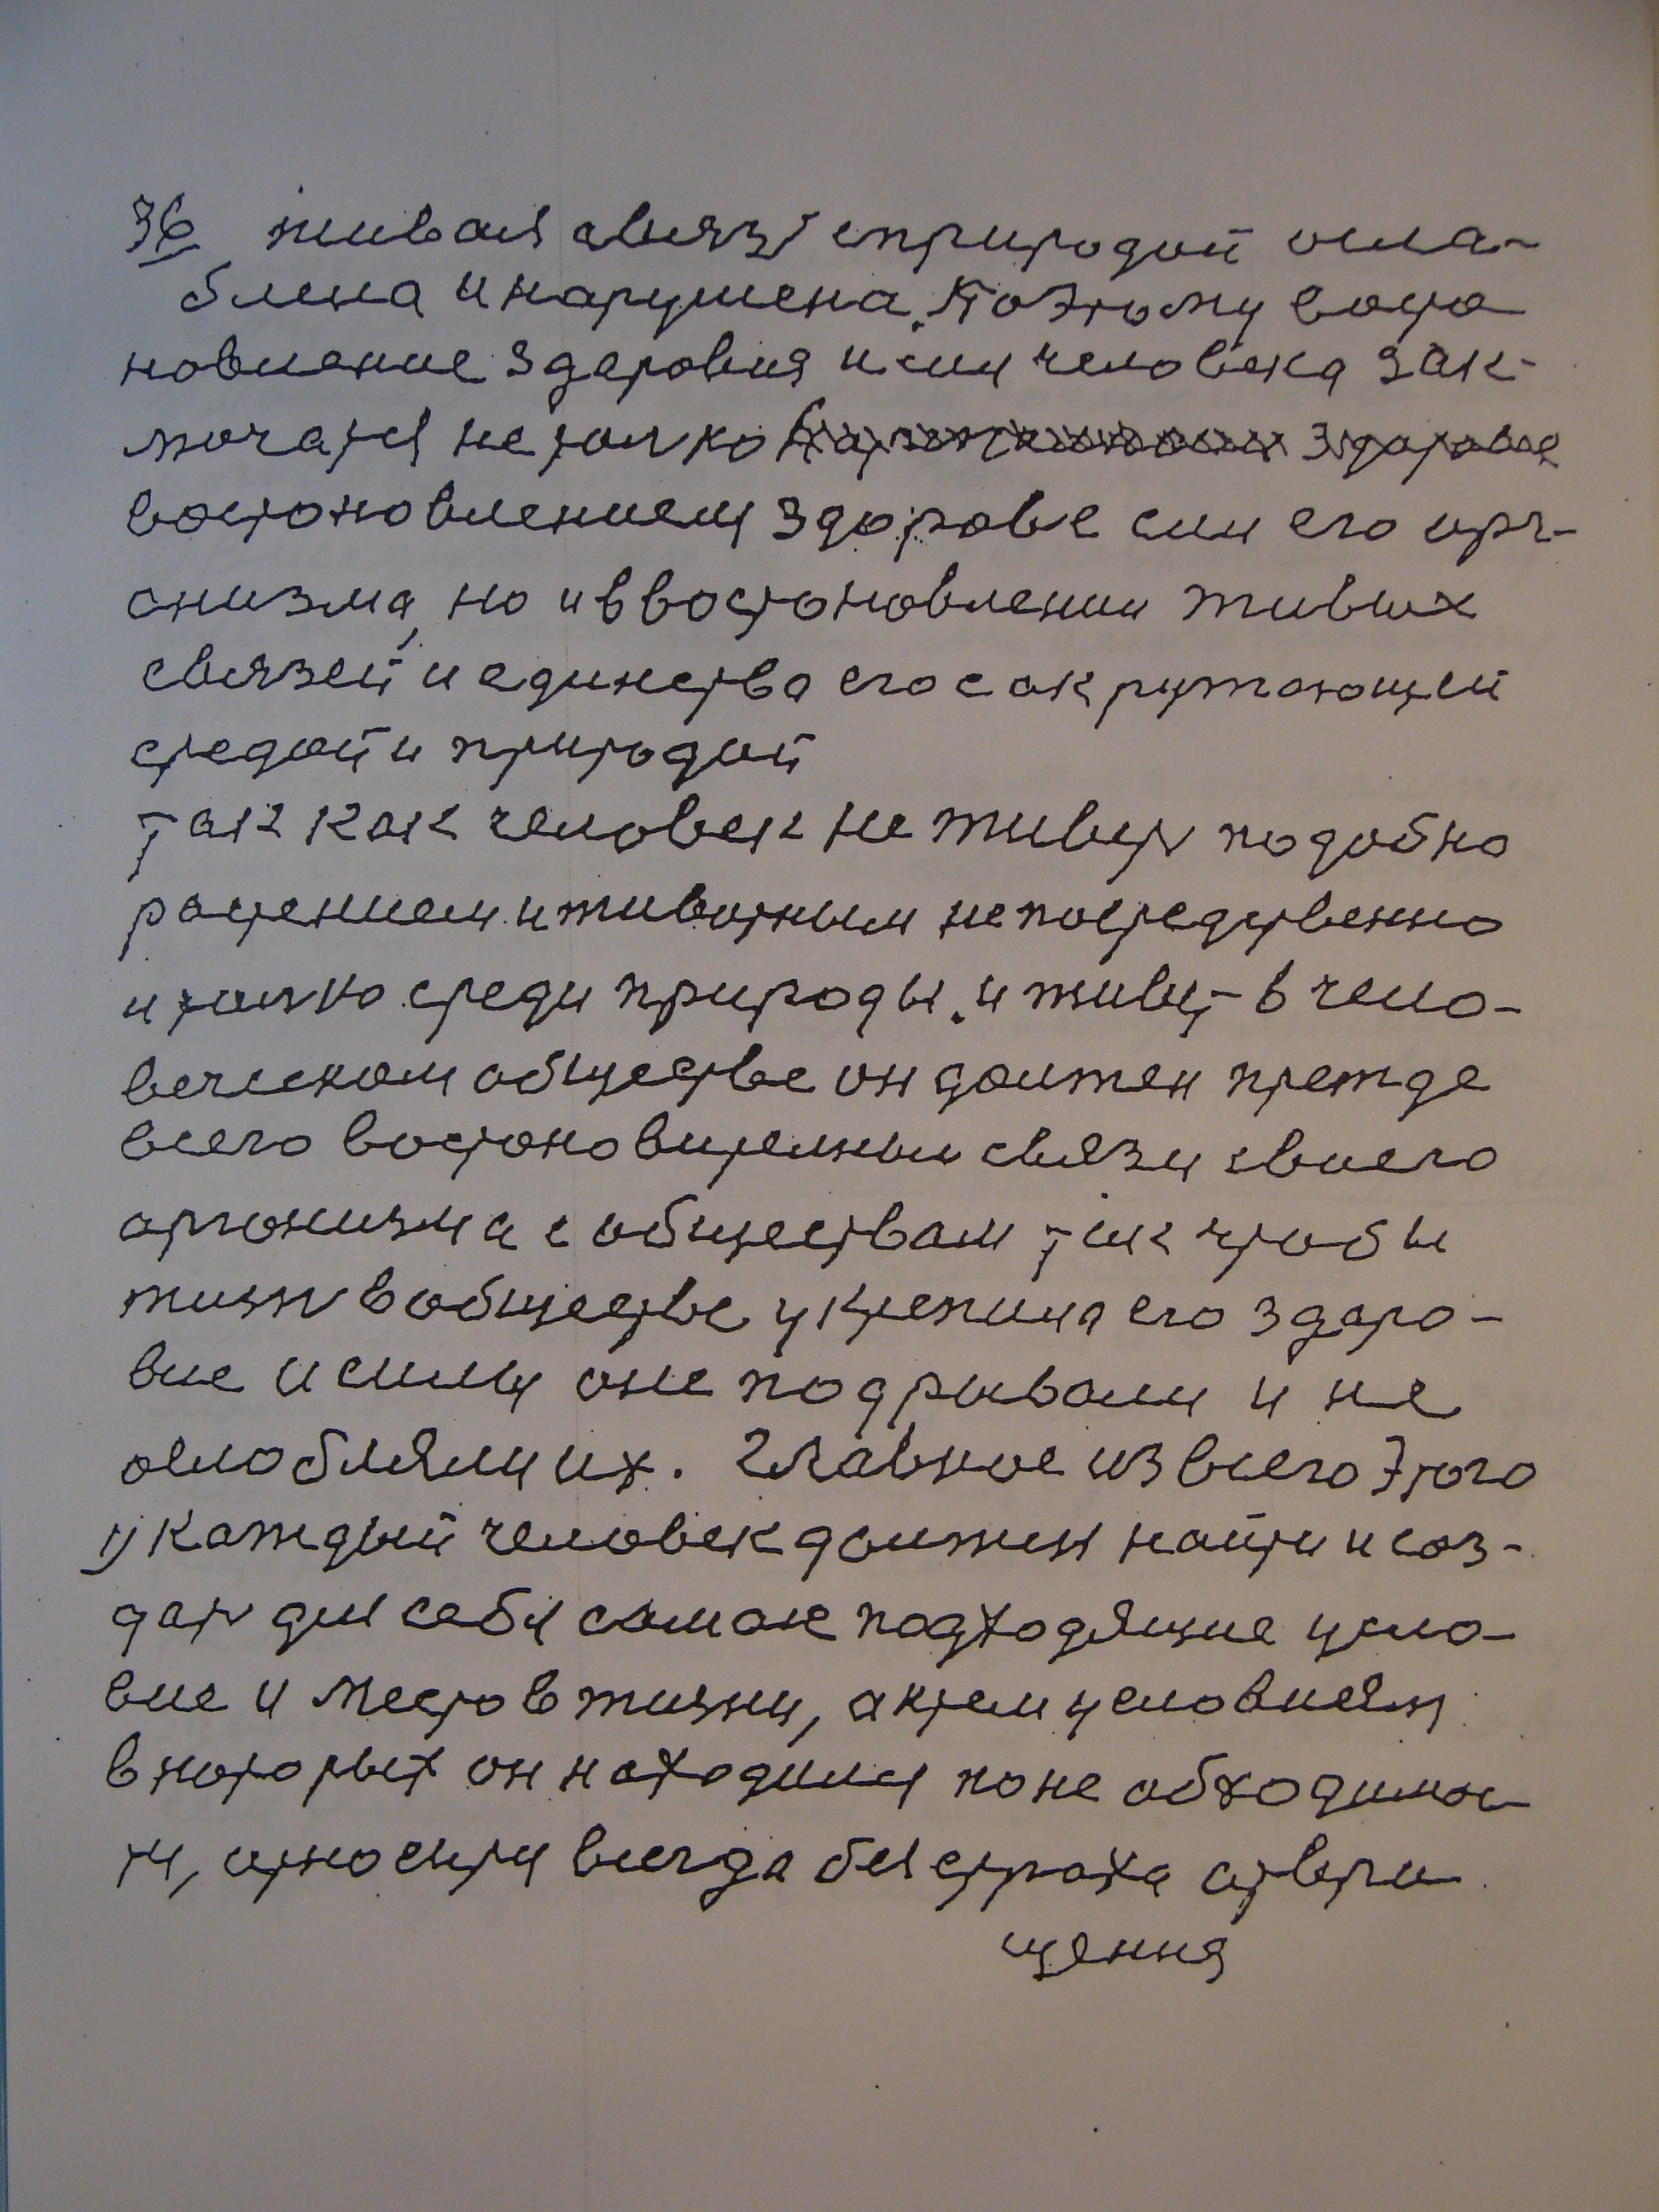 36 живая связь сприродой осла-
блена и нарушена. Поэтому восто
новление здаровия и сил человека зак-
лючатся не только здаровие
востоновлением здоровье сил его орг-
онизма, но и в востоновлении живых
связей и единства его с окружоющей
средой и природой
так как человек не живеть подобно
растением и животным непосредственно
и только среди природы. и живет в чело-
веческом обществе он должен прежде
всего востоновительным связи своего
оргонизма с обществам так чтобы
жизнь в обществе укрепила его здаро-
вие и силы оне подрывали и не
ослобляли их. Главное из всего этого
1) каждый человек должен найти и соз-
дать для себя самое подходящие усло-
вие и место в жизни, а ктем условиям
в которых он находился поне обходимос
ти, относити всегда без страха отвра
щения